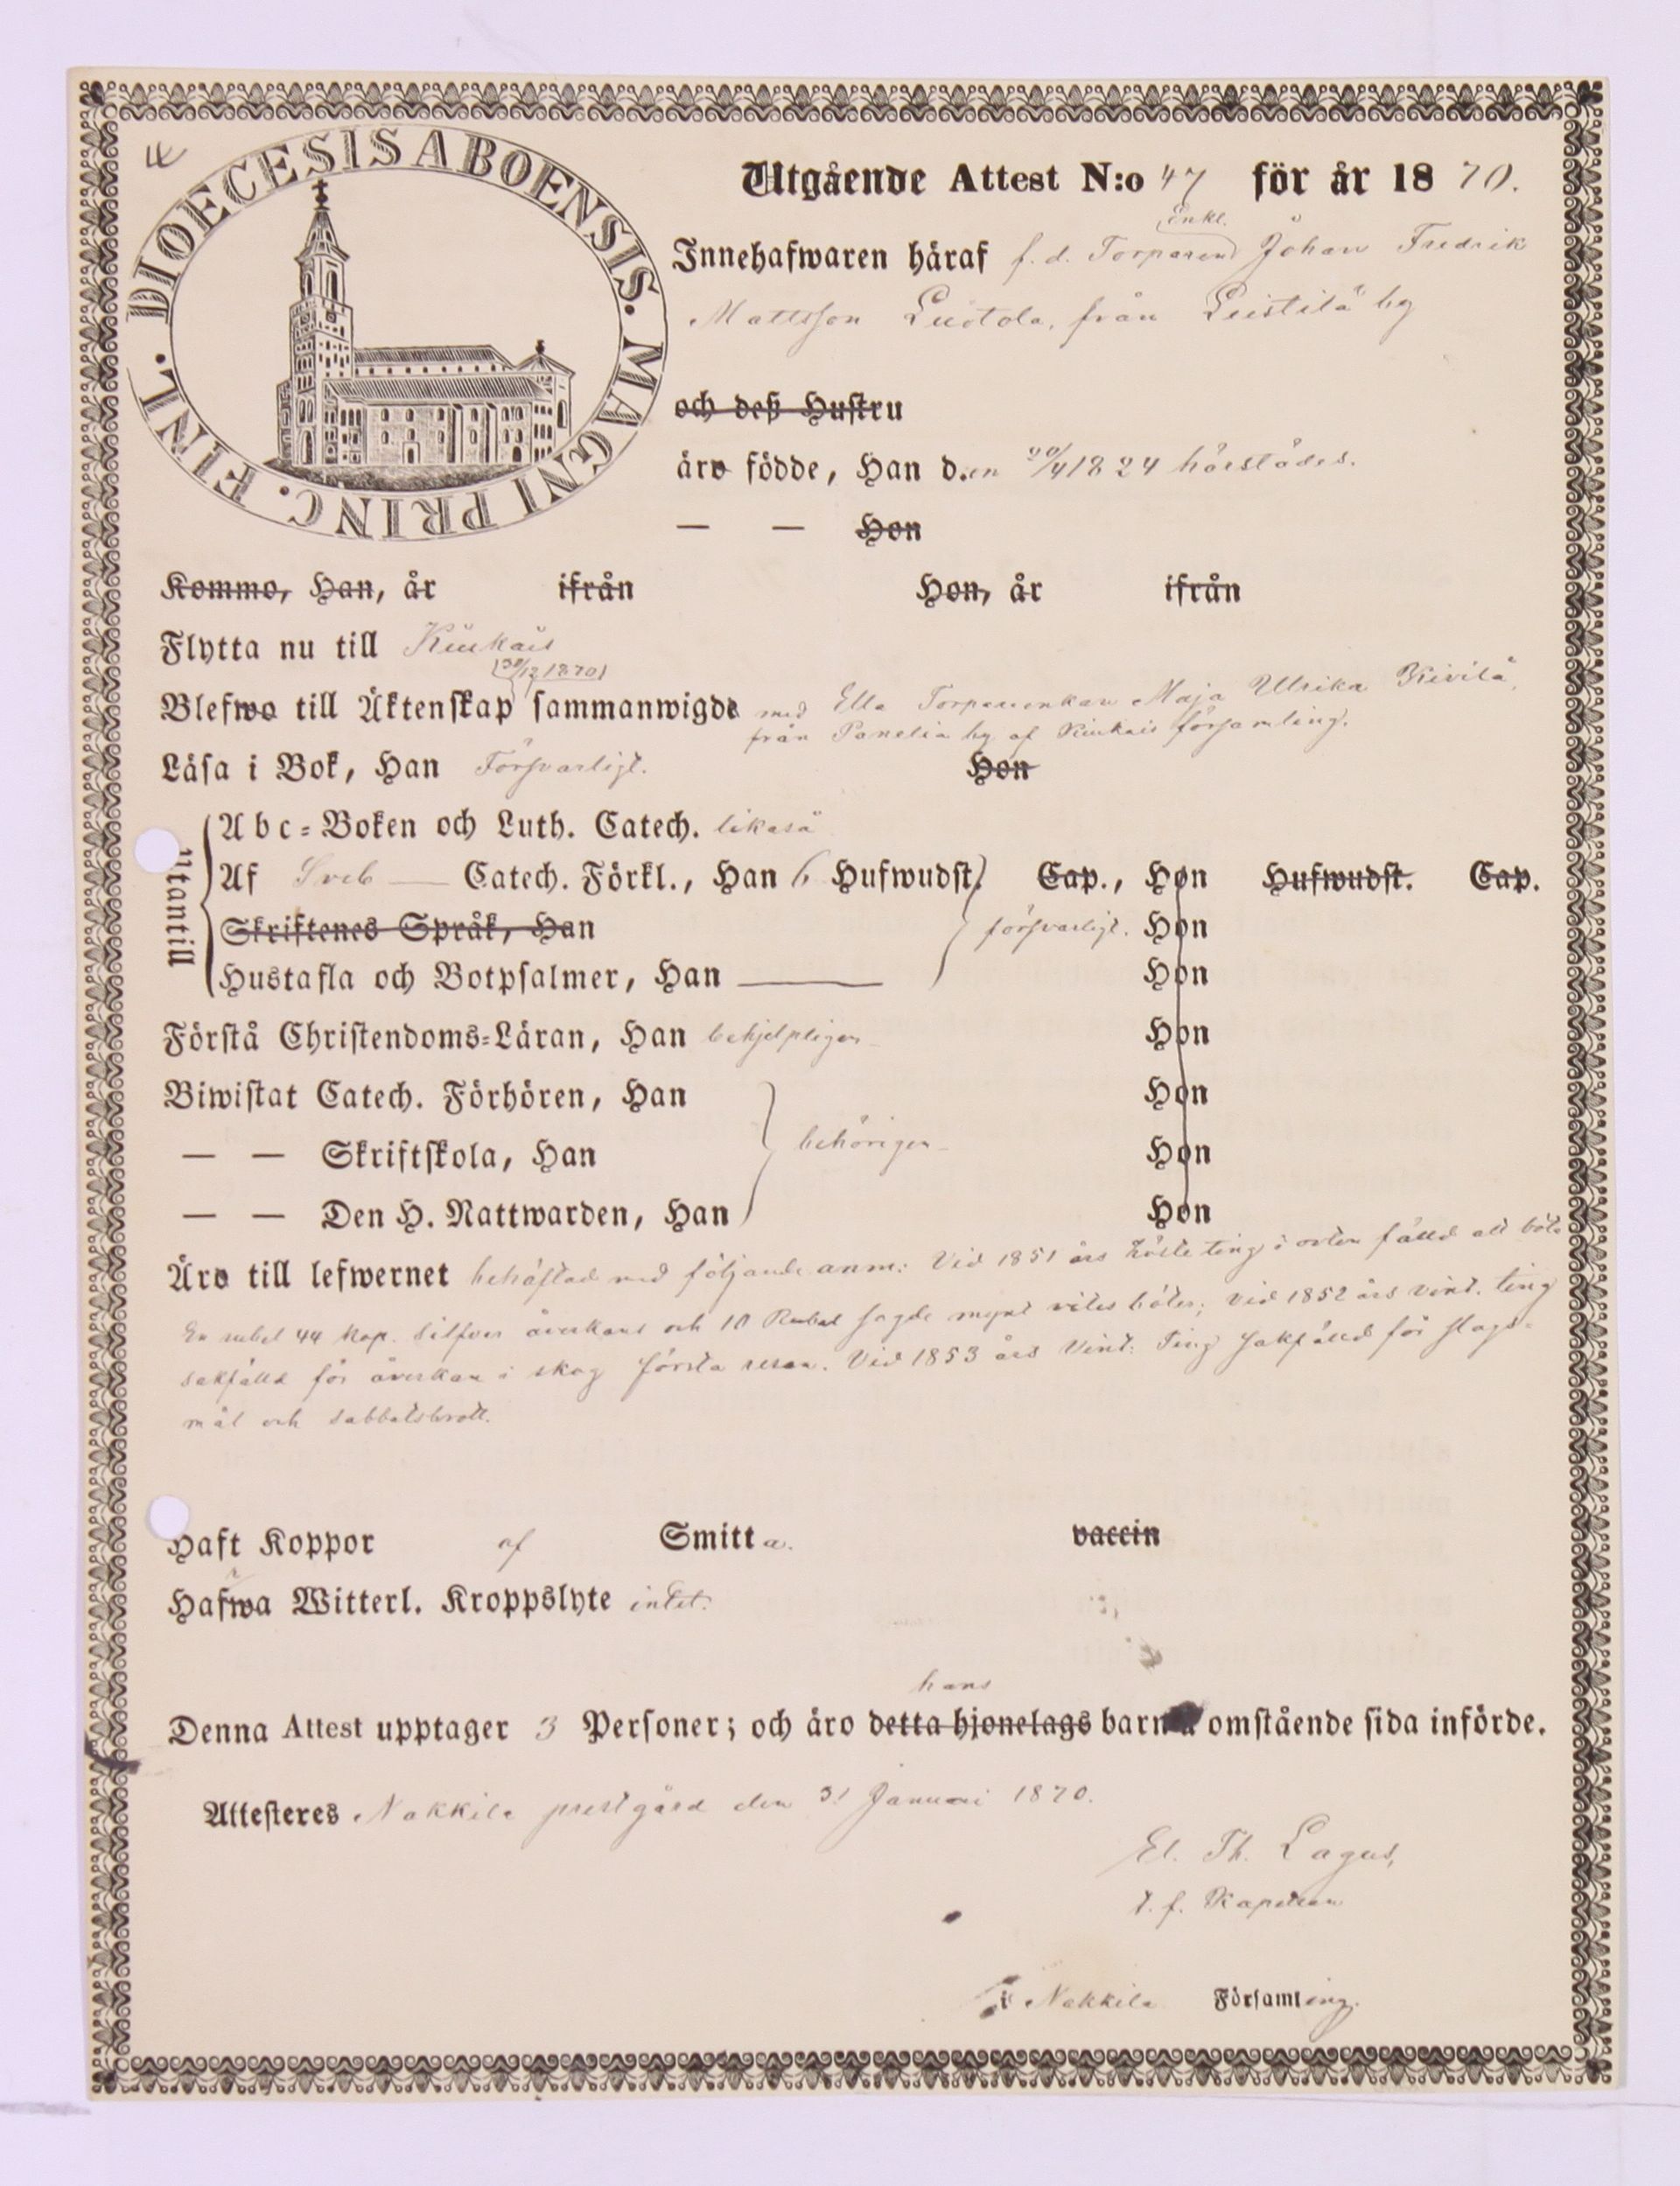 DIOECESIS ABOENSIS. MAGNI PRINC. FINL.
Utgående Attest N:o 47 för år 1870.
Enkl.
Innehafwaren häraf f. d. Torparen Johan Fredrik
Mattsson Luotola, från Leistilä by
och deß Hustru
äro födde, Han den 20/4 1824 härstädes.
— — Hon
Kommo, Han, år ifrån Hon, år ifrån
Flytta nu till Kiukais
(30/12 1870)
Blefwo till Äktenskap sammanwigde med Ella Torparenkan Maja Ulrika Kivilä,
från Panelia by af Kiukais församling.
Läsa i Bok, Han Försvarligt. Hon
Utantill
Abc-Boken och Luth. Catech. likaså
Af Sveb — Catech. Förkl., Han 6 Hufwudst. Cap., Hon Hufwudst. Cap.
Skriftenes Språk, Han försvarligt. Hon
Hustafla och Botpsalmer, Han — Hon
Förstå Christendoms-Läran, Han behjelpligen Hon
Biwistat Catech. Förhören, Han Hon
— — Skriftskola, Han behörigen Hon
— — Den H. Nattwarden, Han Hon
Äro till lefwernet behäftad med följande anm: Vid 1851 års höste ting i orten fälld att böta
En rubel 44 kop. silfver åverkans och 10 Rubel sagde mynt vites böter; Vid 1852 års vint. ting
sakfälld för åverkan i skog första resan. Vid 1853 års Vint. Ting sakfälld för slags-
mål och sabbatsbrott.
Haft Koppor af Smitta. vaccin
Hafwa Witterl. Kroppslyte intet.
hans
Denna Attest upptager 3 Personer; och äro detta hjonelags barn å omstående sida införde.
Attesteres Nakkila prestgård den 31 Januari 1870.
El. Th. Lagus,
t. f. Kapellan
i Nakkila Församling.